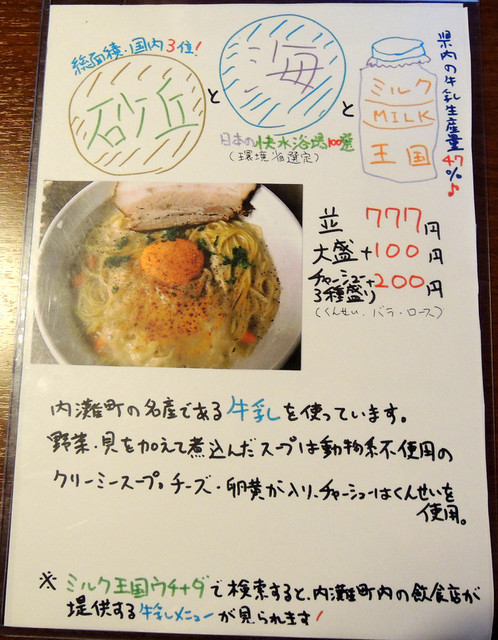 総面積・国内3位!
砂丘
と
海
日本の快水浴場100選
(環境省選定)
と
ミルク
MILK
王国
県内の牛乳生産量47%♪
並 777円
大盛+100円
チャーシュー+200円
3種盛り
(くんせい、バラ・ロース)
内灘町の名産である牛乳を使っています。
野菜・貝を加えて煮込んだスープは動物系不使用の
クリーミースープ。チーズ・卵黄が入り、チャーシューはくんせいを
使用。
※ミルク王国ウチナダで検索すると、内灘町内の飲食店が
提供する牛乳メニューが見られます!